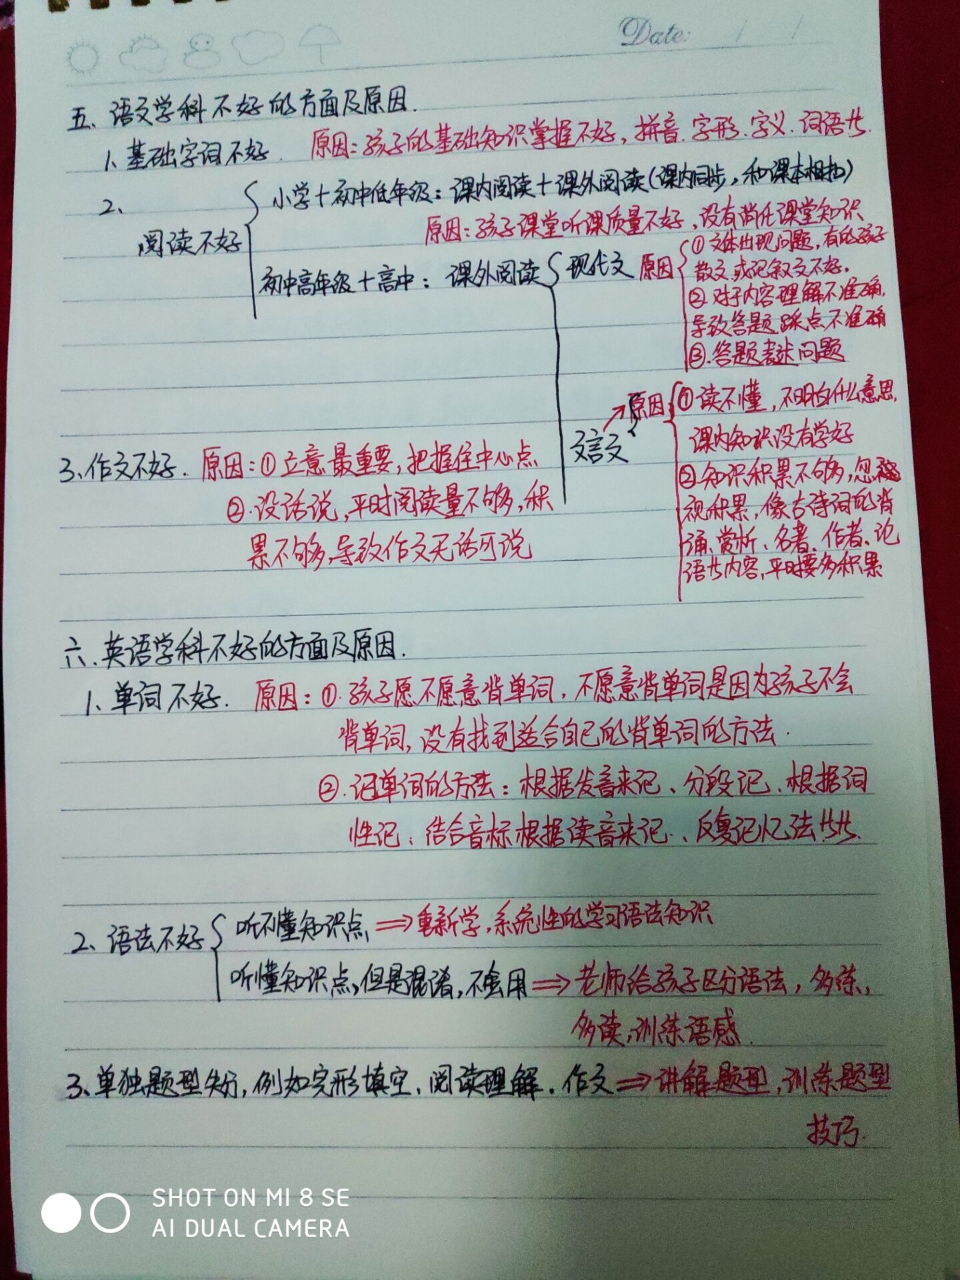 Date: / /
五、语文学科不好的方面及原因.
1、基础字词不好. 原因:孩子的基础知识掌握不好,拼音.字形.字义.词语等.
2、
阅读不好
小学+初中低年级:课内阅读+课外阅读(课内同步,和课本相扣)
原因:孩子课堂听课质量不好,没有消化课堂知识
初中高年级+高中:课外阅读
现代文 原因
①文体出现问题,有的孩子
散文或记叙文不好.
②对于内容理解不准确,
导致答题踩点不准确
③.答题表述问题
文言文
原因
①读不懂,不明白什么意思,
课内知识没有学好
②知识积累不够多,忽
视积累,像古诗词的背
诵、赏析、名著、作者、论
语等内容,平时要多积累
3、作文不好. 原因:①立意最重要,把握住中心点
②.没话说,平时阅读量不够,积
累不够,导致作文无话可说
六.英语学科不好的方面及原因.
1、单词不好. 原因:①.孩子愿不愿意背单词,不愿意背单词是因为孩子不会
背单词,没有找到适合自己的背单词的方法.
②.记单词的方法:根据发音来记、分段记、根据词
性记、结合音标根据读音来记、反复记忆法等等.
2、语法不好
听不懂知识点⇒重新学,系统性的学习语法知识
听懂知识点,但是混淆,不会用⇒老师给孩子区分语法,多练,
多读,训练语感.
3、单独题型失分,例如完形填空、阅读理解、作文⇒讲解题型,训练题型
技巧.
SHOT ON MI 8 SE
AI DUAL CAMERA